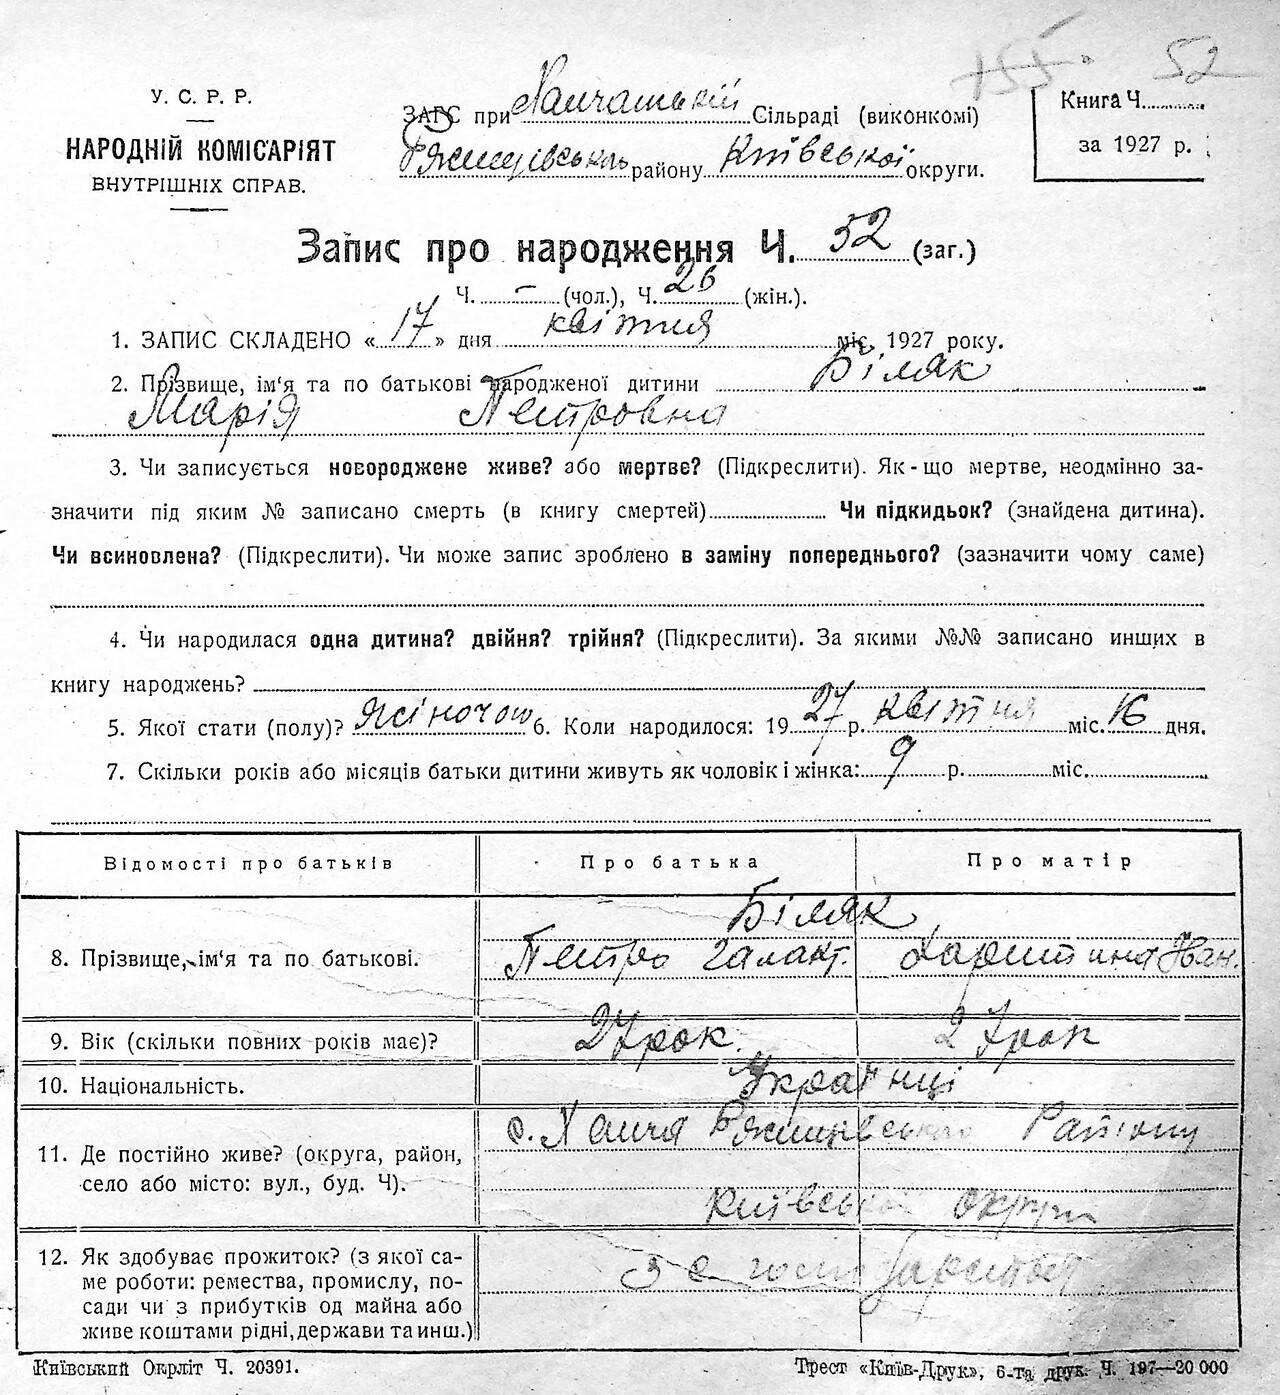 155 52
У. С. Р. Р.
НАРОДНІЙ КОМІСАРІЯТ
ВНУТРІШНІХ СПРАВ.
ЗАГС при Ханчанській Сільраді (виконкомі)
району Київської округи.
Книга Ч.
за 1927 р.
Запис про народження Ч. 52 (заг.)
Ч. – (чол.), Ч. 26 (жін.).
1. ЗАПИС СКЛАДЕНО « 17 » дня квітня міс. 1927 року.
2. Прізвище, ім'я та по батькові народженої дитини Біляк
Марія Петровна
3. Чи записується новороджене живе? або мертве? (Підкреслити). Як-що мертве, неодмінно за-
значити під яким № записано смерть (в книгу смертей) Чи підкидьок? (знайдена дитина).
Чи всиновлена? (Підкреслити). Чи може запис зроблено в заміну попереднього? (зазначити чому саме)
4. Чи народилася одна дитина? двійня? трійня? (Підкреслити). За якими №№ записано инших в
книгу народжень?
5. Якої стати (полу)? Жіночої 6. Коли народилося: 1927 р. квітня міс. 16 дня.
7. Скільки років або місяців батьки дитини живуть як чоловік і жінка: 9 р. міс.
Відомості про батьків Про батька Про матір
Біляк
8. Прізвище, ім'я та по батькові. Петро Галакт. Харитина Іван.
9. Вік (скільки повних років має)? 27 рок. 27 рок
10. Національність. Українці
с. Ханча Ржищівського Району
11. Де постійно живе? (округа, район,
село або місто: вул., буд. Ч).
Київської округи
12. Як здобуває прожиток? (з якої са-
ме роботи: ремества, промислу, по-
сади чи з прибутків од майна або
живе коштами рідні, держави та инш.)
З с господарства
Київський Окрліт Ч. 20391. Трест «Київ-Друк», 6-та друк. Ч. 197—20 000